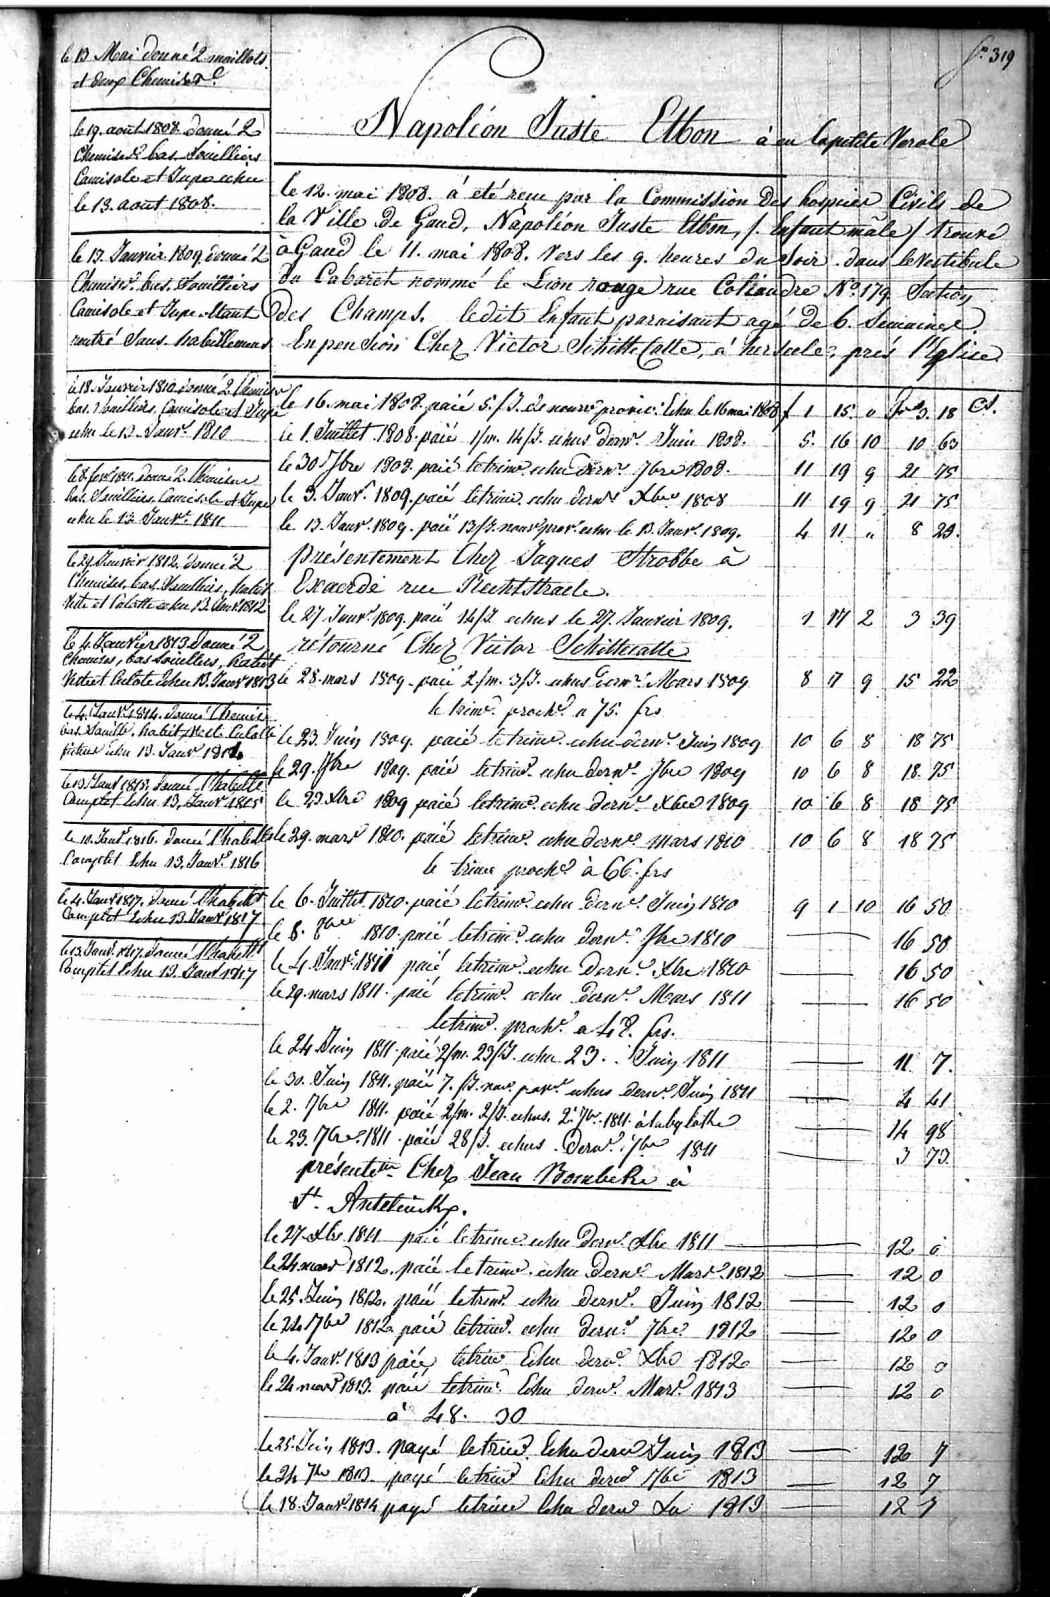 fo 319
Napoléon Juste Elbon à eu la petite Verole
le 12. mai 1808. á été reçu par la Commission des hospices Civils de
la Ville de Gand, Napoléon Juste Elbon, / Enfant mâle / trouvé
à Gand le 11. mai 1808. Vers les 9. heures du Soir dans le Vestibule
du Cabaret nommé le Lion rouge rue No. 179 Section
des Champs. ledit Enfant paraisant agé de 6. Semaines.
En pension Chez Victor à herseele, près l'Eglise
le 13 Mai donné 2 maillots
et deux Chemises
le 19. août 1808. donné 2
Chemises bas Souilliers
Camisole et Jupe echu
le 13. août 1808.
le 13. Janvier 1809 donné 2
Chemises. bas. Souilliers
Camisole et Jupe. étant
rentré Sans habillement
le 18. Janvier 1810 donné 2 Chemises
bas, Souilliers, Camisole et Jupe
echu le 13. Janvr. 1810
donné 2 Chemises
bas. Souilliers, Camisole et Jupe
echu le 13. Janvr. 1811
Janvier 1812. donné 2
Chemises, bas Souilliers, habit
Veste et Culotte echu 13 Janvr 1812
le 4. Janvier 1813 donné 2
Chemises, bas Souilliers, habit
Veste et Culote Echu 13. Janvr 1813
le 4. Janvr. 1814. donné Chemises
bas Souill. habit, Veste Culotte
echu 13. Janvr 1814
le 13. Janvr 1815, donné l'habillt
Complet Echu 13, Janvr 1815
le 10. Janvr 1816. donné l'habillt
Complet Echu 13. Janvr. 1816
le 4. Janvr 1817. donné l'habillt
Complet Echu 13 Janvr 1817
le 13. Janvr. 1817. donné l'habillt
Complet Echu 13. Janvr 1817
le 16. mai 1808. paié 5./J. de nourre. provic: Echu le 16 mai 1808 f 1 15. 0 frs 3. 18 Cs.
le 1. Juillet. 1808. paié 1/m. 14/J. echus dernr. Juin 1808. 5. 16 10 10 63
le 30 7bre 1808. paié le trime. echu dernr. 7bre 1808. 11 19 9 21 75
le 3. Janvr. 1809. paié le trime echu dernr Xbre 1808 11 19 9 21 75
le 13 Janvr. 1809. paié 13/J. nourr. prov. echu le 13. Janvr. 1809. 4 11 " 8 29.
présentement Chez Jaques Strobbe à
Exaerde rue
le 27 Janvr. 1809. paié 14/J echus le 27. Janvier 1809. 1 17 2 3 39
rétourné Chez Victor
le 28. mars 1809. paié 2/m. 3/J. echus dernr. Mars 1809 8 7 9 15 22
le trime. prochn. a 75. frs
le 23. Juin 1809. paié le trime. echu dernr. Juin 1809 10 6 8 18 75
le 29. 7bre 1809. paié le trime. echu dernr. 7bre 1809 10 6 8 18. 75
le 29 Xbre 1809 paié le trime. echu dernr. Xbre 1809 10 6 8 18 75
le 29. mars 1810. paié le trime. echu dernr. mars 1810 10 6 8 18 75
le trime prochn à 66. frs
le 6. Juillet. 1810. paié le trime. echu dernr. Juin 1810 9 1 10 16 50
le 8. 1810. paié le trime. echu dernr. 7bre 1810 16 50
le 4 Janvr. 1811 paié le trime. echu dernr. Xbre 1810 16 50
le 29. mars 1811. paié le trime. echu dernr. Mars 1811 16 50
le trime. prochn. a 48. frs.
le 24 Juin 1811. paié 2/m. 23/J. echu 23. Juin 1811 11 7.
le 30. Juin 1811. paié 7. /J. echus dernr. Juin 1811 4 41
le 2. 7bre 1811. paié 2/m. 2/J. echus. 2. 7br. 1811 14 98
le 23. 7bre. 1811. paié 28/J. echus. dernr. 7bre 1811 3 73.
présentemt. Chez Jean à
St.
le 27. Xbre 1811 paié le trime. echu dernr. Xbre 1811 12 0
le 24 mars 1812. paié le trime. echu dernr. Mars. 1812 12 0
le 25. Juin 1812. paié le trime. echu dernr. Juin 1812 12 0
le 24 7bre 1812 paié le trime. echu dernr. 7bre 1812 12 0
le 4. Janvr. 1813 paié, le trime Echu dernr. Xbre 1812 12 0
le 24 mars 1813. paié le trime. Echu dernr. Mars. 1813 12 0
à 48. 30
le 25. Juin 1813. payé le trime. Echu dernr Juin 1813 12 7
le 24 7bre 1813. payé le trime Echu dernr 7bre 1813 12 7
le 18. Janvr. 1814 payé le trime Echu dernr 1813 12 7